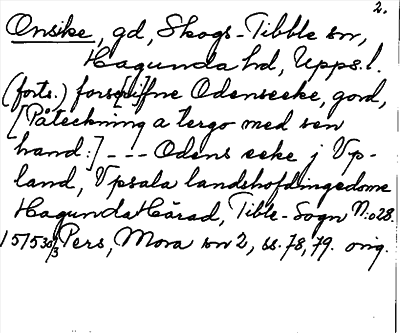 2.
Onsike, gd, Skogs-Tibble sn,
Hagunda hd, Upps. l.
(forts.) forsc[ri]fne Odenseeke, gord,
[Påteckning a tergo med sen
hand:] --- Odens eeke j Vp-
land, Vpsala landshofdingedome
Hagunda Härad, Tible-Sogn N:o 28.
1575 30/3 Pers, Mora sn 2, ss. 78, 79. orig.